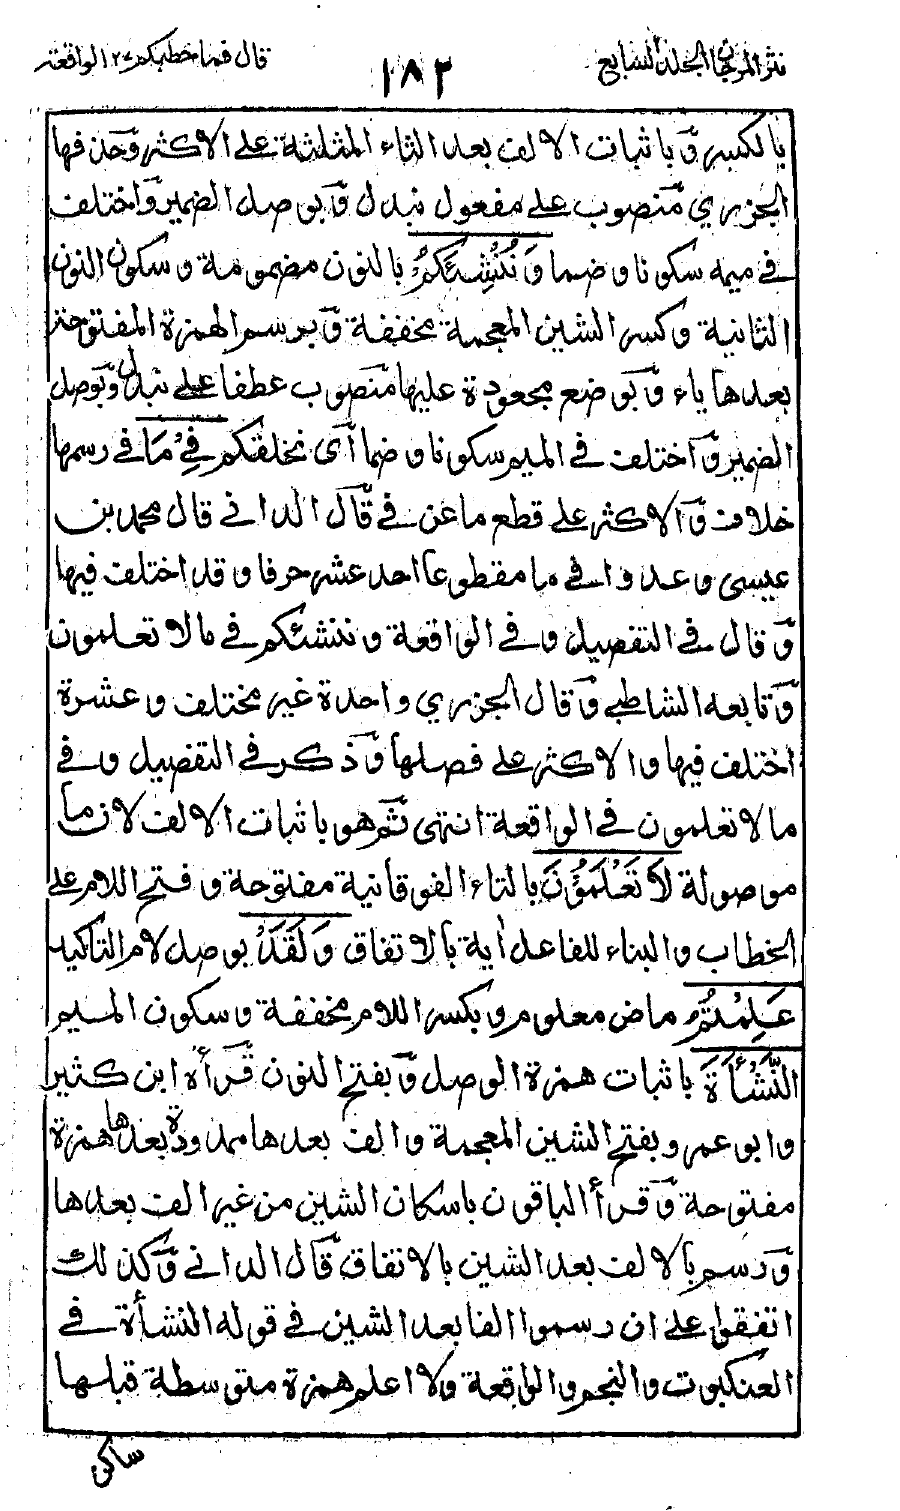 نثر المرجان الجلد السابع
١٨٢
قال فما خطبكم ٢٧ الواقعة
بالكسر وّباثبات الالف بعد الثاء المثلثة على الاكثر وّحذفها
الجزري مّنصوب على مفعول نبدل وّبوصل الضمير وّاختلف
فى ميمه سكونا وضما وَنُنْشِئَكُمْ بالنون مضمومة وسكون النون
الثانية وكسر الشين المعجمة مخففة وّبرسم الهمزة المفتوحة
بعدها ياء وّبوضع مجعودة عليها مّنصوب عطفا على نبدل وّبوصل
الضمير وّاختلف فى الميم سكونا وضما أى نخلقكم فِيْ مَا فى رسمها
خلاف وّالاكثر على قطع ما عن فى قّال الدانى قال محمد بن
عيسى وعدوا فى ما مقطوعا احد عشر حرفا وقد اختلف فيها
وّقال فى التفصيل وفى الواقعة وننشئكم فى ما لا تعلمون
وّتابعه الشاطبى وّقال الجزري واحدة غير مختلف وعشرة
اختلف فيها والاكثر على فصلها وّذكر فى التفصيل وفى
ما لا تعلمون فى الواقعة انتهى ثّم هو باثبات الالف لان ما
موصولة لَا تَعْلَمُوْنَ بالتاء الفوقانية مفتوحة وفتح اللام على
الخطاب والبناء للفاعل أية بالاتفاق وَلَقَدْ بوصل لام التاكيد
عَلِمْتُمُ ماض معلوم وبكسر اللام مخففة وسكون الميم
النَّشْأَةَ باثبات همزة الوصل وّبفتح النون قّرأه ابن كثير
وابو عمر وبفتح الشين المعجمة والف بعدها ممدودة بعدها همزة
مفتوحة وّقرأ الباقون باسكان الشين من غير الف بعدها
وّرسم بالالف بعد الشين بالاتفاق قّال الدانى وّكذلك
اتفقوا على ان رسموا الفا بعد الشين فى قوله النشأة فى
العنكبوت والنجم والواقعة ولا اعلم همزة متوسطة قبلها
ساكن